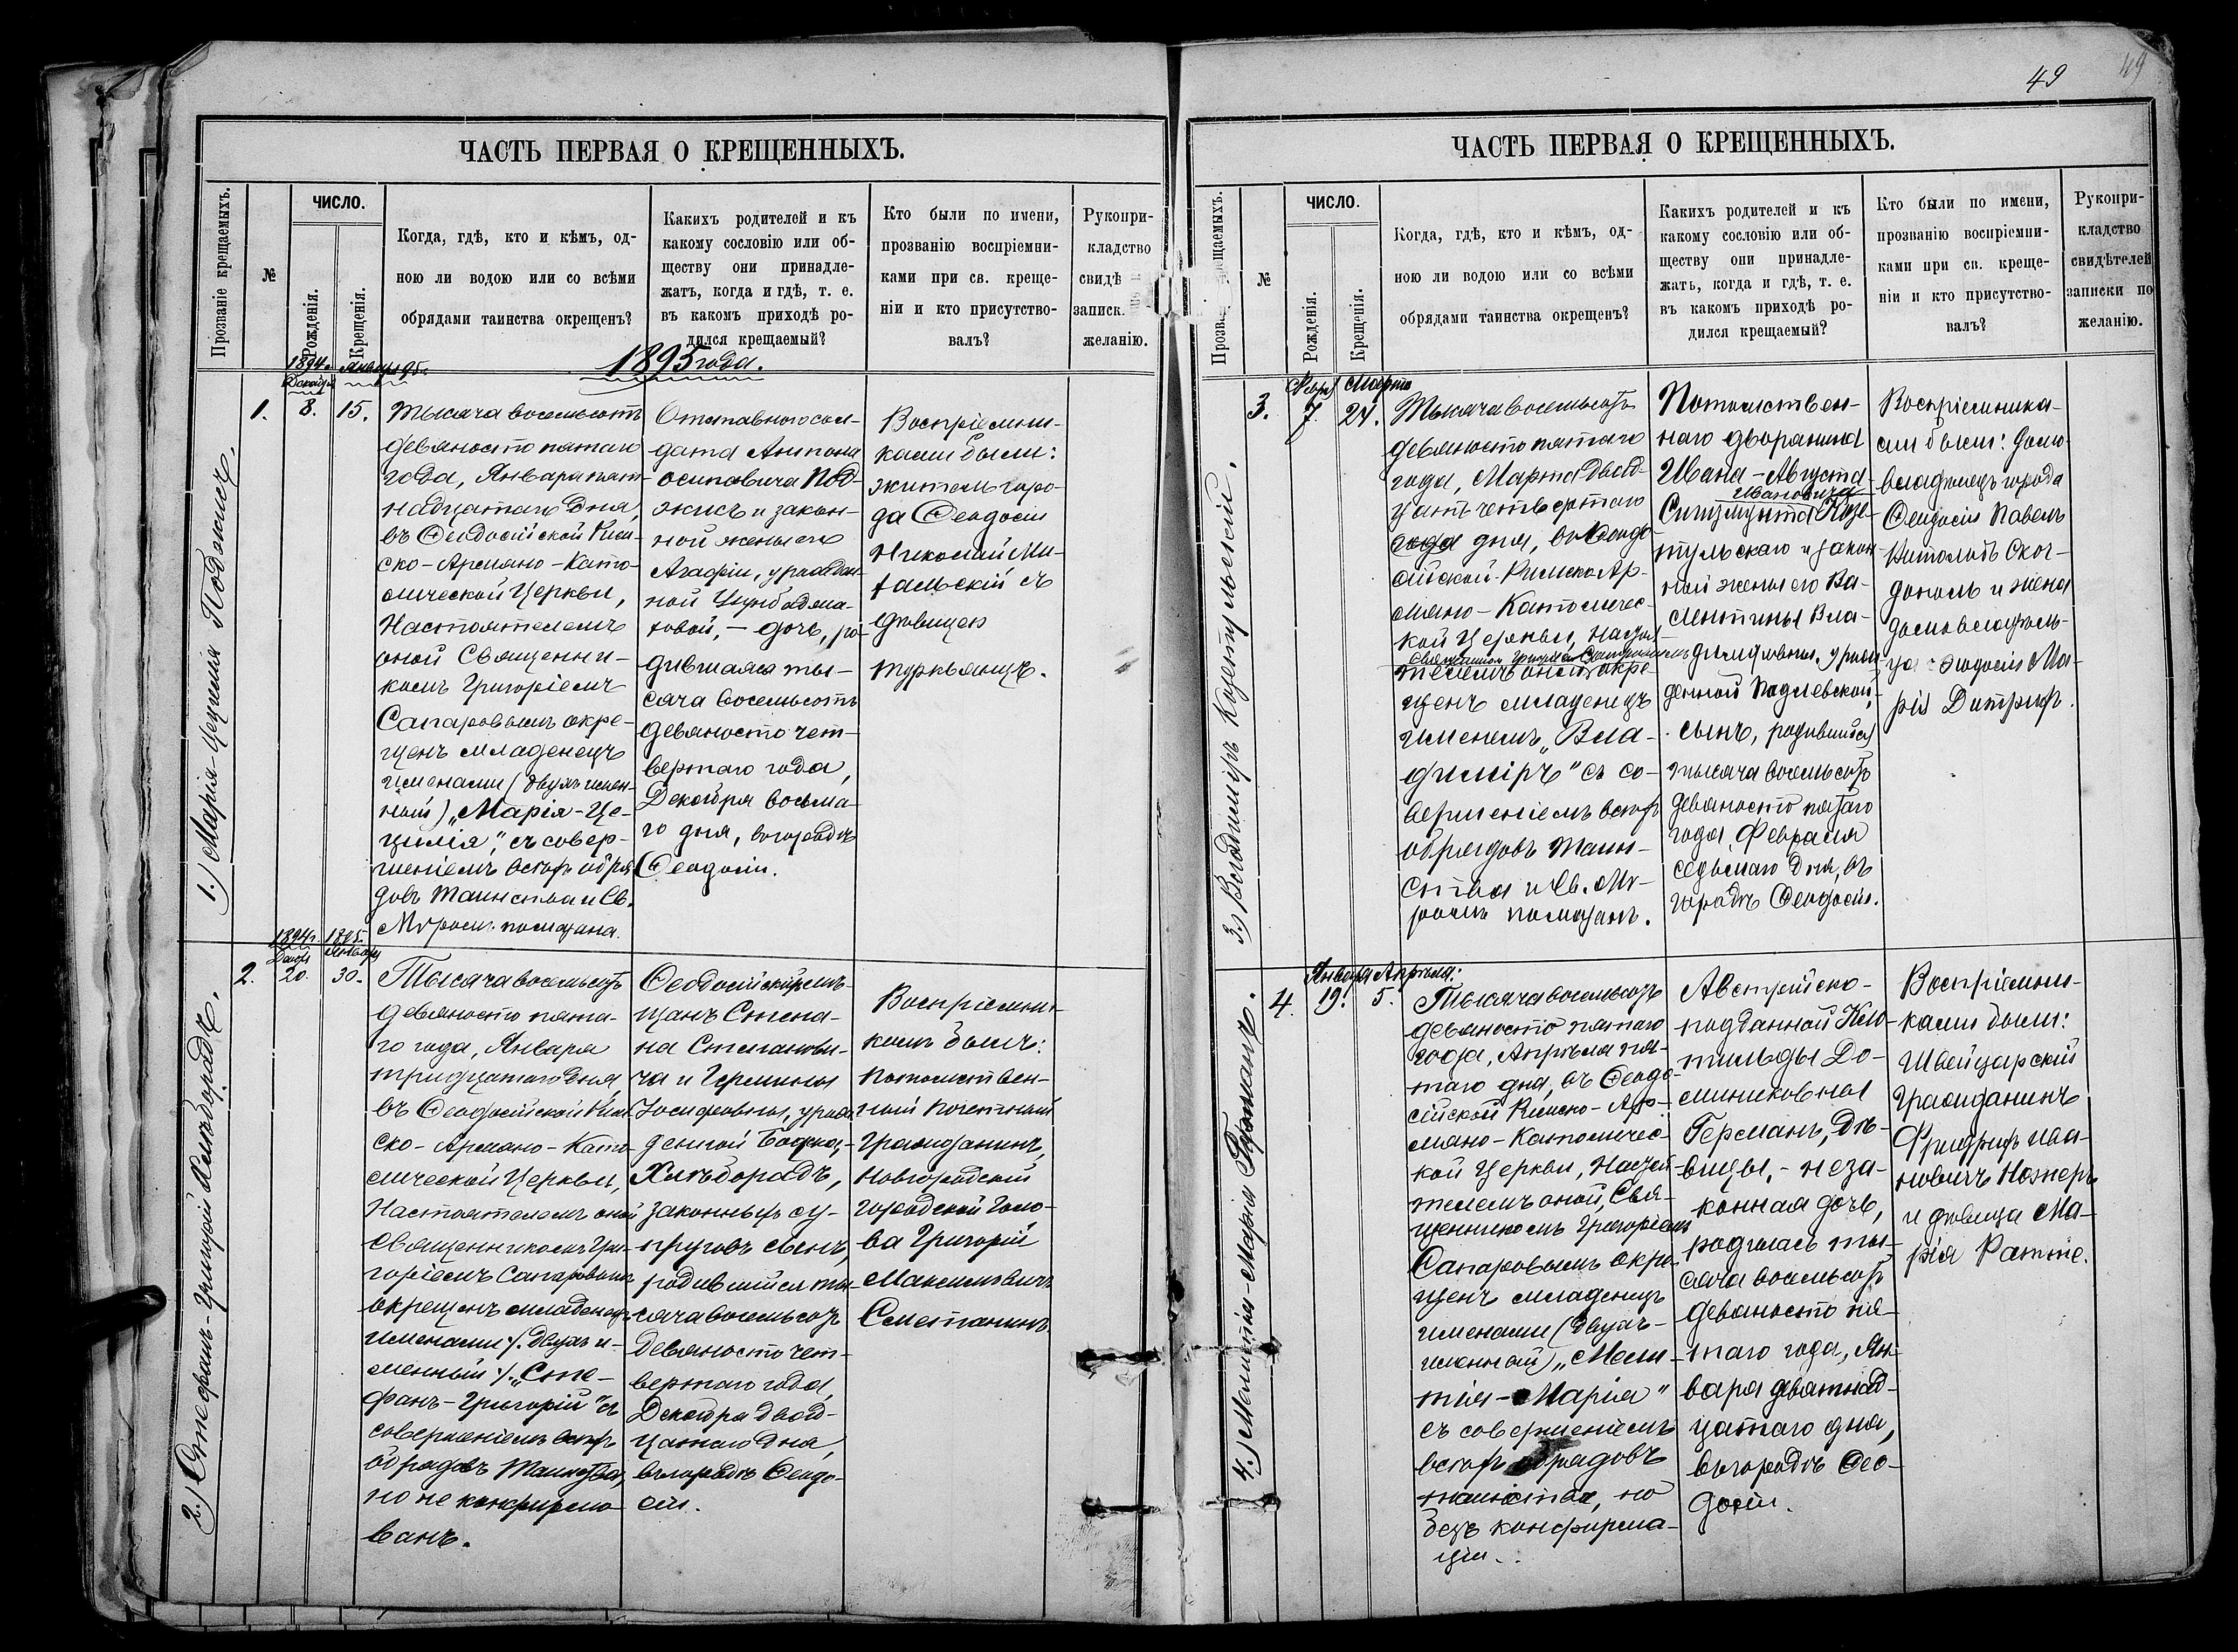 49
49
ЧАСТЬ ПЕРВАЯ О КРЕЩЕННЫХЪ.
Прозваніе крещаемыхъ.
№
ЧИСЛО.
Рожденія.
Крещенія.
Когда, гдѣ, кто и кѣмъ, од-
ною ли водою или со всѣми
обрядами таинства окрещенъ?
Какихъ родителей и къ
какому сословію или об-
ществу они принадле-
жатъ, когда и гдѣ, т. е.
въ какомъ приходѣ ро-
дился крещаемый?
Кто были по имени,
прозванію воспріемни-
ками при св. креще-
ніи и кто присутство-
валъ?
Рукопри-
кладство
свидѣ
записк.
желанію.
1895 года.
1894.
Декабря
Январь 95.
1.) Марія-Цецилія Поджисъ.
1.
8.
15.
Тысяча восемьсотъ
девяносто пятаго
года, Января пят-
надцатаго дня,
въ Ѳеодосійской Рим-
ско-Армяно-Като-
лической Церкви,
Настоятелемъ
оной Священни-
комъ Григоріемъ
Сапаровымъ окре-
щенъ младенецъ
именами (двухъимен-
ный) „Марія-Це-
цилія", съ совер-
шеніемъ всѣхъ обря-
довъ Таинства и Св.
Мѵромъ помазана.
Отставного сол-
дата Антона
Осиповича Под-
жисъ и закон-
ной жены его
Агафіи, урожден-
ной
товой, – дочь, ро-
дившаяся ты-
сяча восемьсотъ
девяносто чет-
вертаго года,
Декабря восьма-
го дня, въ городѣ
Ѳеодосіи.
Воспріемни-
ками были:
житель горо-
да Ѳеодосіи
Николай Ми-
тальскій съ
дѣвицею
2.) Стефанъ-Григорій Хлѣборадъ.
1894г.
Декабр
1895.
Января
2.
20.
30.
Тысяча восемьсотъ
девяносто пята-
го года, Января
тридцатаго дня,
въ Ѳеодосійской Рим-
ско-Армяно-Като-
лической Церкви,
Настоятелемъ оной
Священникомъ Гри-
горіемъ Сапаровымъ
окрещенъ младенецъ
именами /: двухъ и-
менный :/ „Сте-
фанъ-Григорій" съ
совершеніемъ всѣхъ
обрядовъ Таинства,
но не конфирмо-
ванъ.
Ѳеодосійскихъ мѣ-
щанъ Степа-
на Степанови-
ча и Гермины
Іосифовны, урож-
денной
Хлѣборадъ,
законныхъ су-
пруговъ сынъ,
родившійся ты-
сяча восемьсотъ
девяносто чет-
вертаго года,
Декабря двад-
цатаго дня,
въ городѣ Ѳеодо-
сіи.
Воспріемни-
комъ былъ:
Потомствен-
ный Почетный
Гражданинъ,
Новгородскій
Городской Голо-
ва Григорій
Максимовичъ
Сметанинъ.
ЧАСТЬ ПЕРВАЯ О КРЕЩЕННЫХЪ.
ещаемыхъ.
№
ЧИСЛО.
Рожденія.
Крещенія.
Когда, гдѣ, кто и кѣмъ, од-
ною ли водою или со всѣми
обрядами таинства окрещенъ?
Какихъ родителей и къ
какому сословію или об-
ществу они принадле-
жатъ, когда и гдѣ, т. е.
въ какомъ приходѣ ро-
дился крещаемый?
Кто были по имени,
прозванію воспріемни-
ками при св. креще-
ніи и кто присутство-
валъ?
Рукопри-
кладство
свидѣтелей
записки по
желанію.
3.) Владиміръ Козетульскій.
Февр.
Марта
3.
7.
24.
Тысяча восемьсотъ
девяносто пятаго
года, Марта двад-
цать четвертаго
дня, въ Ѳеодо-
сійской Римско Ар-
мяно-Католичес-
кой Церкви, Насто-
Священникомъ Григоріемъ Сапаровымъ
ятелемъ оной окре-
щенъ младенецъ
именемъ „Вла-
диміръ" съ со-
вершеніемъ всѣхъ
обрядовъ Таин-
ства и Св. Мѵ-
ромъ помазанъ.
Потомствен-
наго дворянина
Ивана-Августа-
Ивановича
Сигизмунта Козе-
тульскаго и закон-
ной жены его Ва-
лентины Вла-
диміровны, урож-
денной Подлевской,
сынъ, родившійся
тысяча восемьсотъ
девяносто пятаго
года, Февраля
седьмаго дня, въ
городѣ Ѳеодосіи.
Воспріемника-
ми были: домо-
владѣлецъ города
Ѳеодосіи Павелъ
и жена
домовладѣль-
ца Ѳеодосіи Ма-
рія Дитрихъ.
4.) Мелитія-Марія Германъ.
Января
Апрѣля:
4.
19.
5.
Тысяча восемьсотъ
девяносто пятаго
года, Апрѣля пя-
таго дня, въ Ѳеодо-
сійской Римско-Ар-
мяно-Католичес-
кой Церкви, Настоя-
телемъ оной, Свя-
щенникомъ Григоріемъ
Сапаровымъ окре-
щенъ младенецъ
именами (двухъ-
именный) „Мели-
тія-Марія"
съ совершеніемъ
всѣхъ обрядовъ
таинства, но
безъ конфирма-
ціи.
Австрійско-
подданной Кло-
тильды До-
миниковны
Германъ, дѣ-
вицы, - неза-
конная дочь,
родилась ты-
сяча восемьсотъ
девяносто пя-
таго года, Ян-
варя девятнад-
цатаго дня,
въ городѣ Ѳео-
досіи.
Воспріемни-
ками были:
Швейцарскій
Гражданинъ
Фридрихъ Ива-
новичъ
и дѣвица Ма-
рія Ратте.